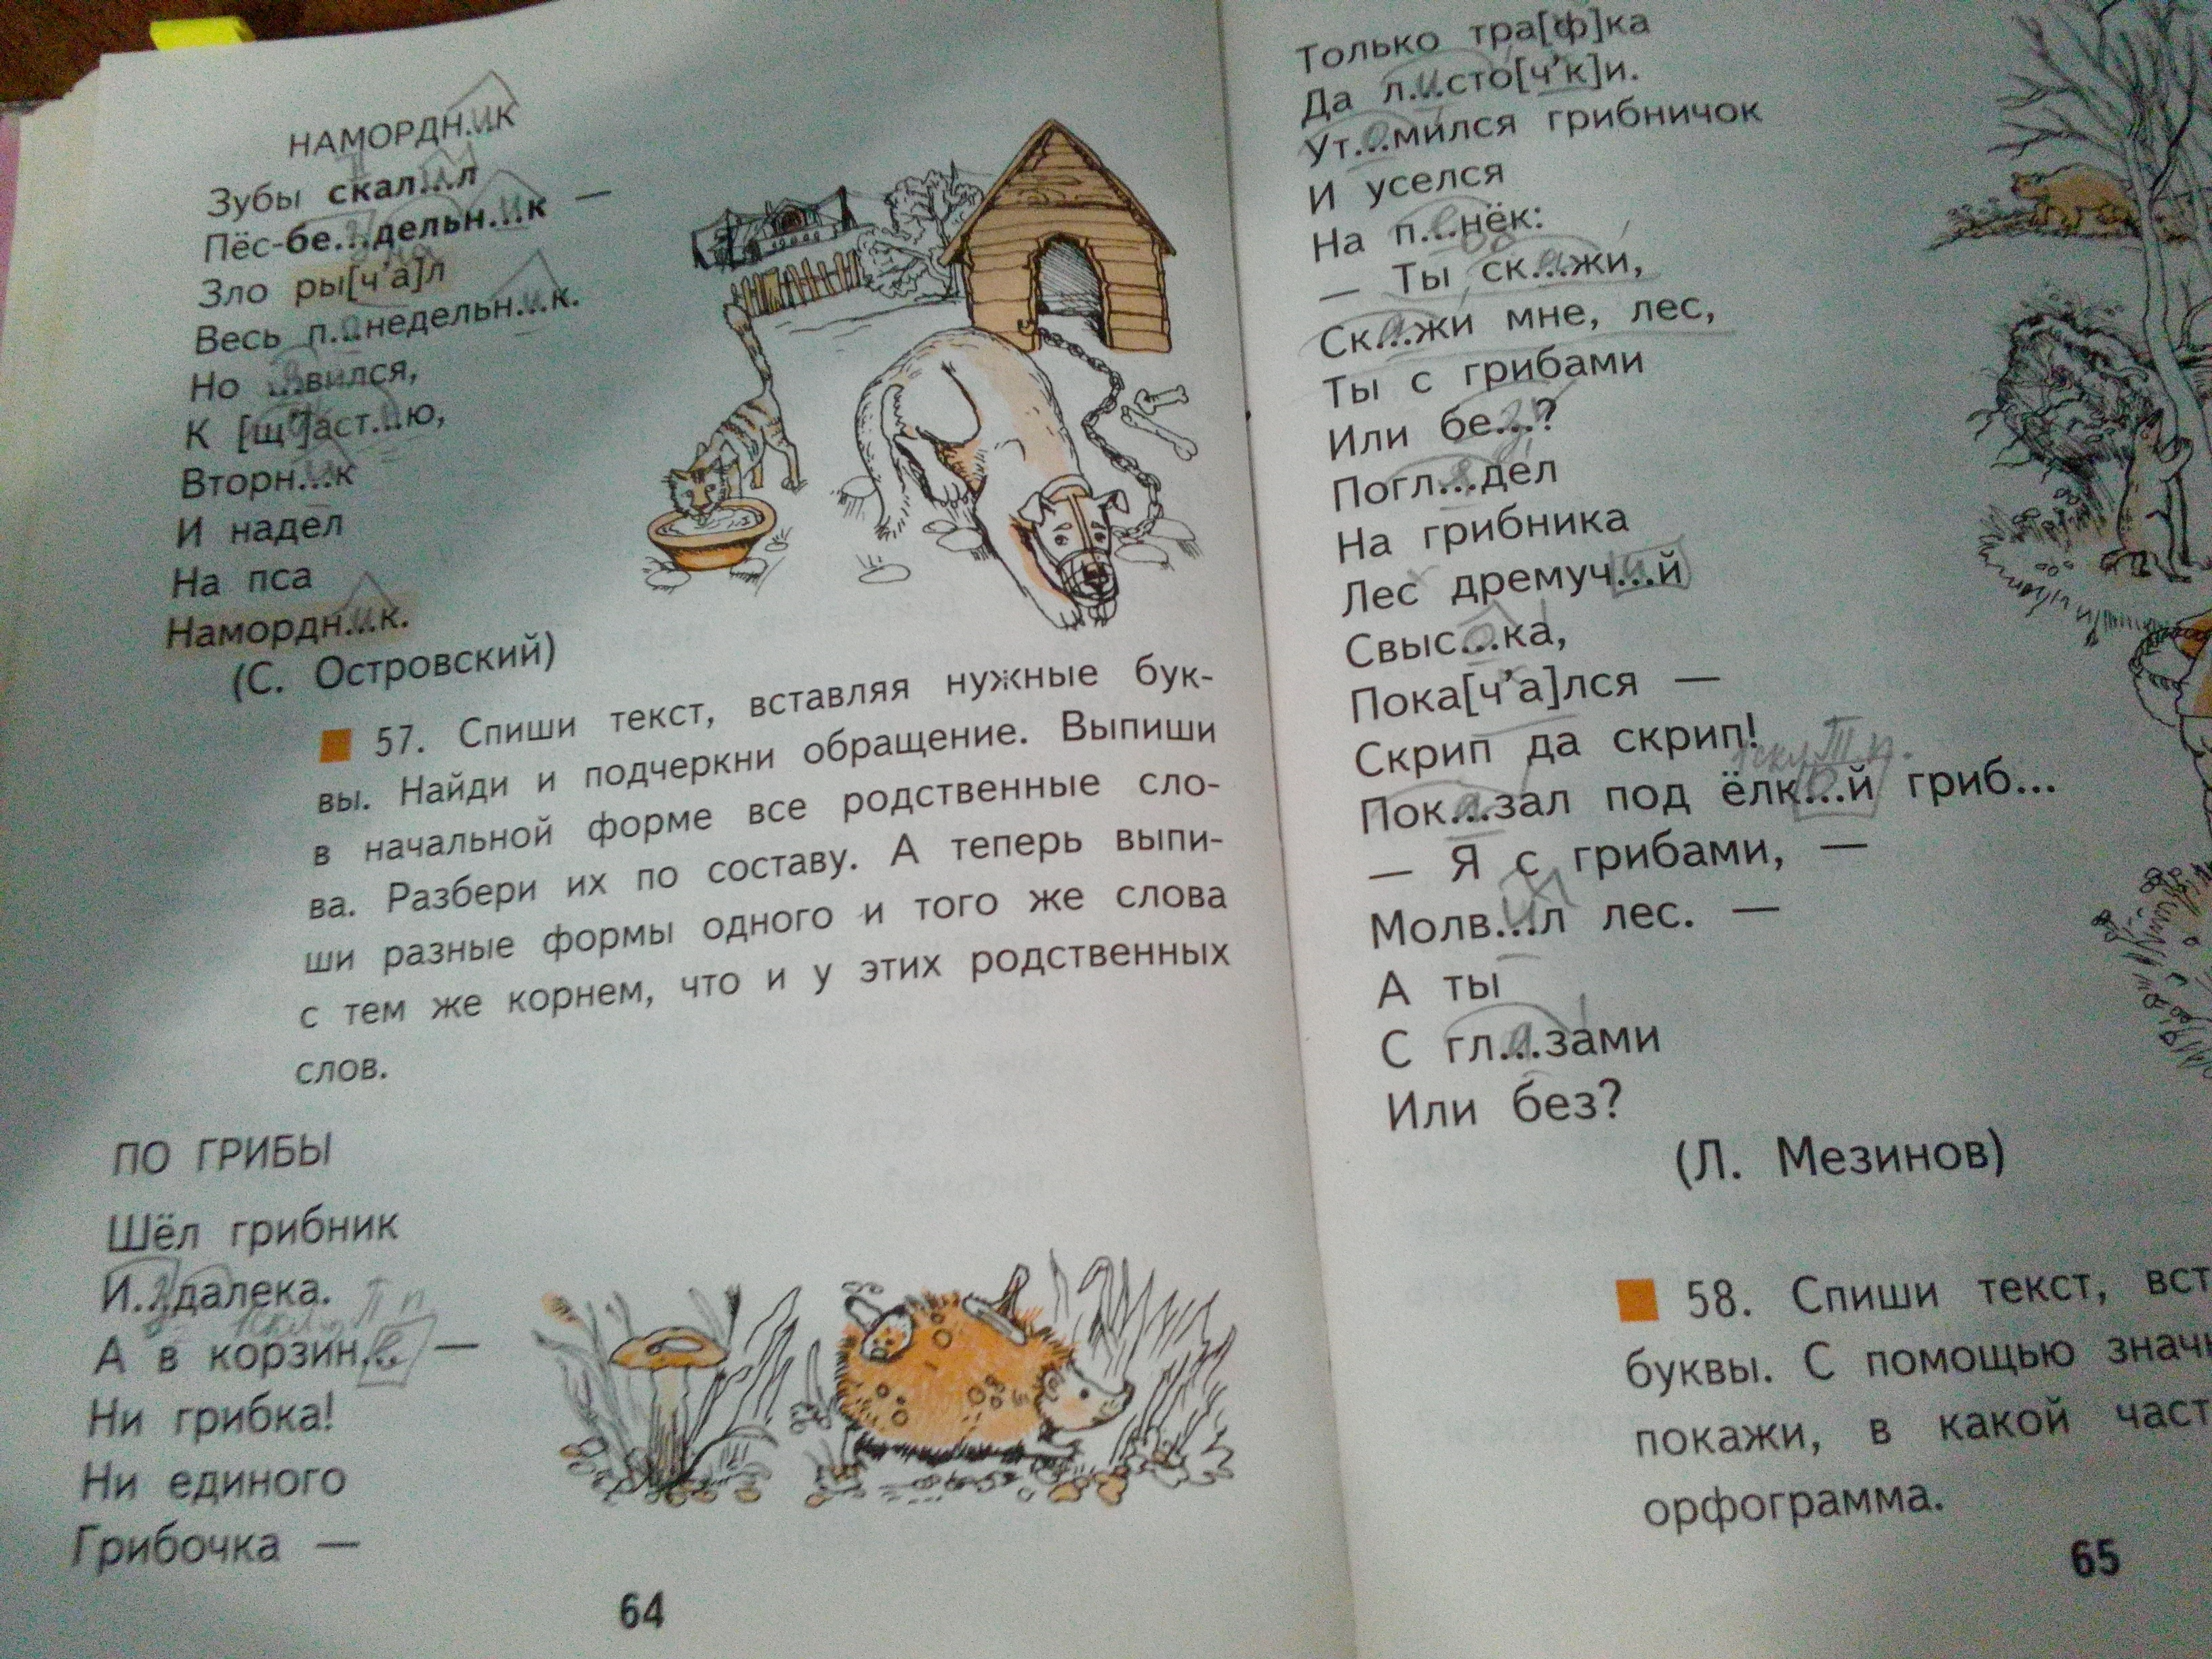 НАМОРДН.ИК
Зубы скал...л
Пёс-бе...дельн...к —
Зло ры[ч'а]л
Весь п...недельн...к.
Но ...вился,
К [щ']аст...ю,
Вторн...к
И надел
На пса
Намордн...к.
(С. Островский)
57. Спиши текст, вставляя нужные бук-
вы. Найди и подчеркни обращение. Выпиши
в начальной форме все родственные сло-
ва. Разбери их по составу. А теперь выпи-
ши разные формы одного и того же слова
с тем же корнем, что и у этих родственных
слов.
ПО ГРИБЫ
Шёл грибник
И...далека.
А в корзин... —
Ни грибка!
Ни единого
Грибочка —
64
Только тра[ф]ка
Да л...сто[ч'к]и.
Ут...мился грибничок
И уселся
На п...нёк:
— Ты ск...жи,
Ск...жи мне, лес,
Ты с грибами
Или бе...?
Погл...дел
На грибника
Лес дремуч...й
Свыс...ка,
Пока[ч'а]лся —
Скрип да скрип!
Пок...зал под ёлк...й гриб...
— Я с грибами, —
Молв...л лес. —
А ты
С гл...зами
Или без?
(Л. Мезинов)
58. Спиши текст, вст
буквы. С помощью знач
покажи, в какой част
орфограмма.
65